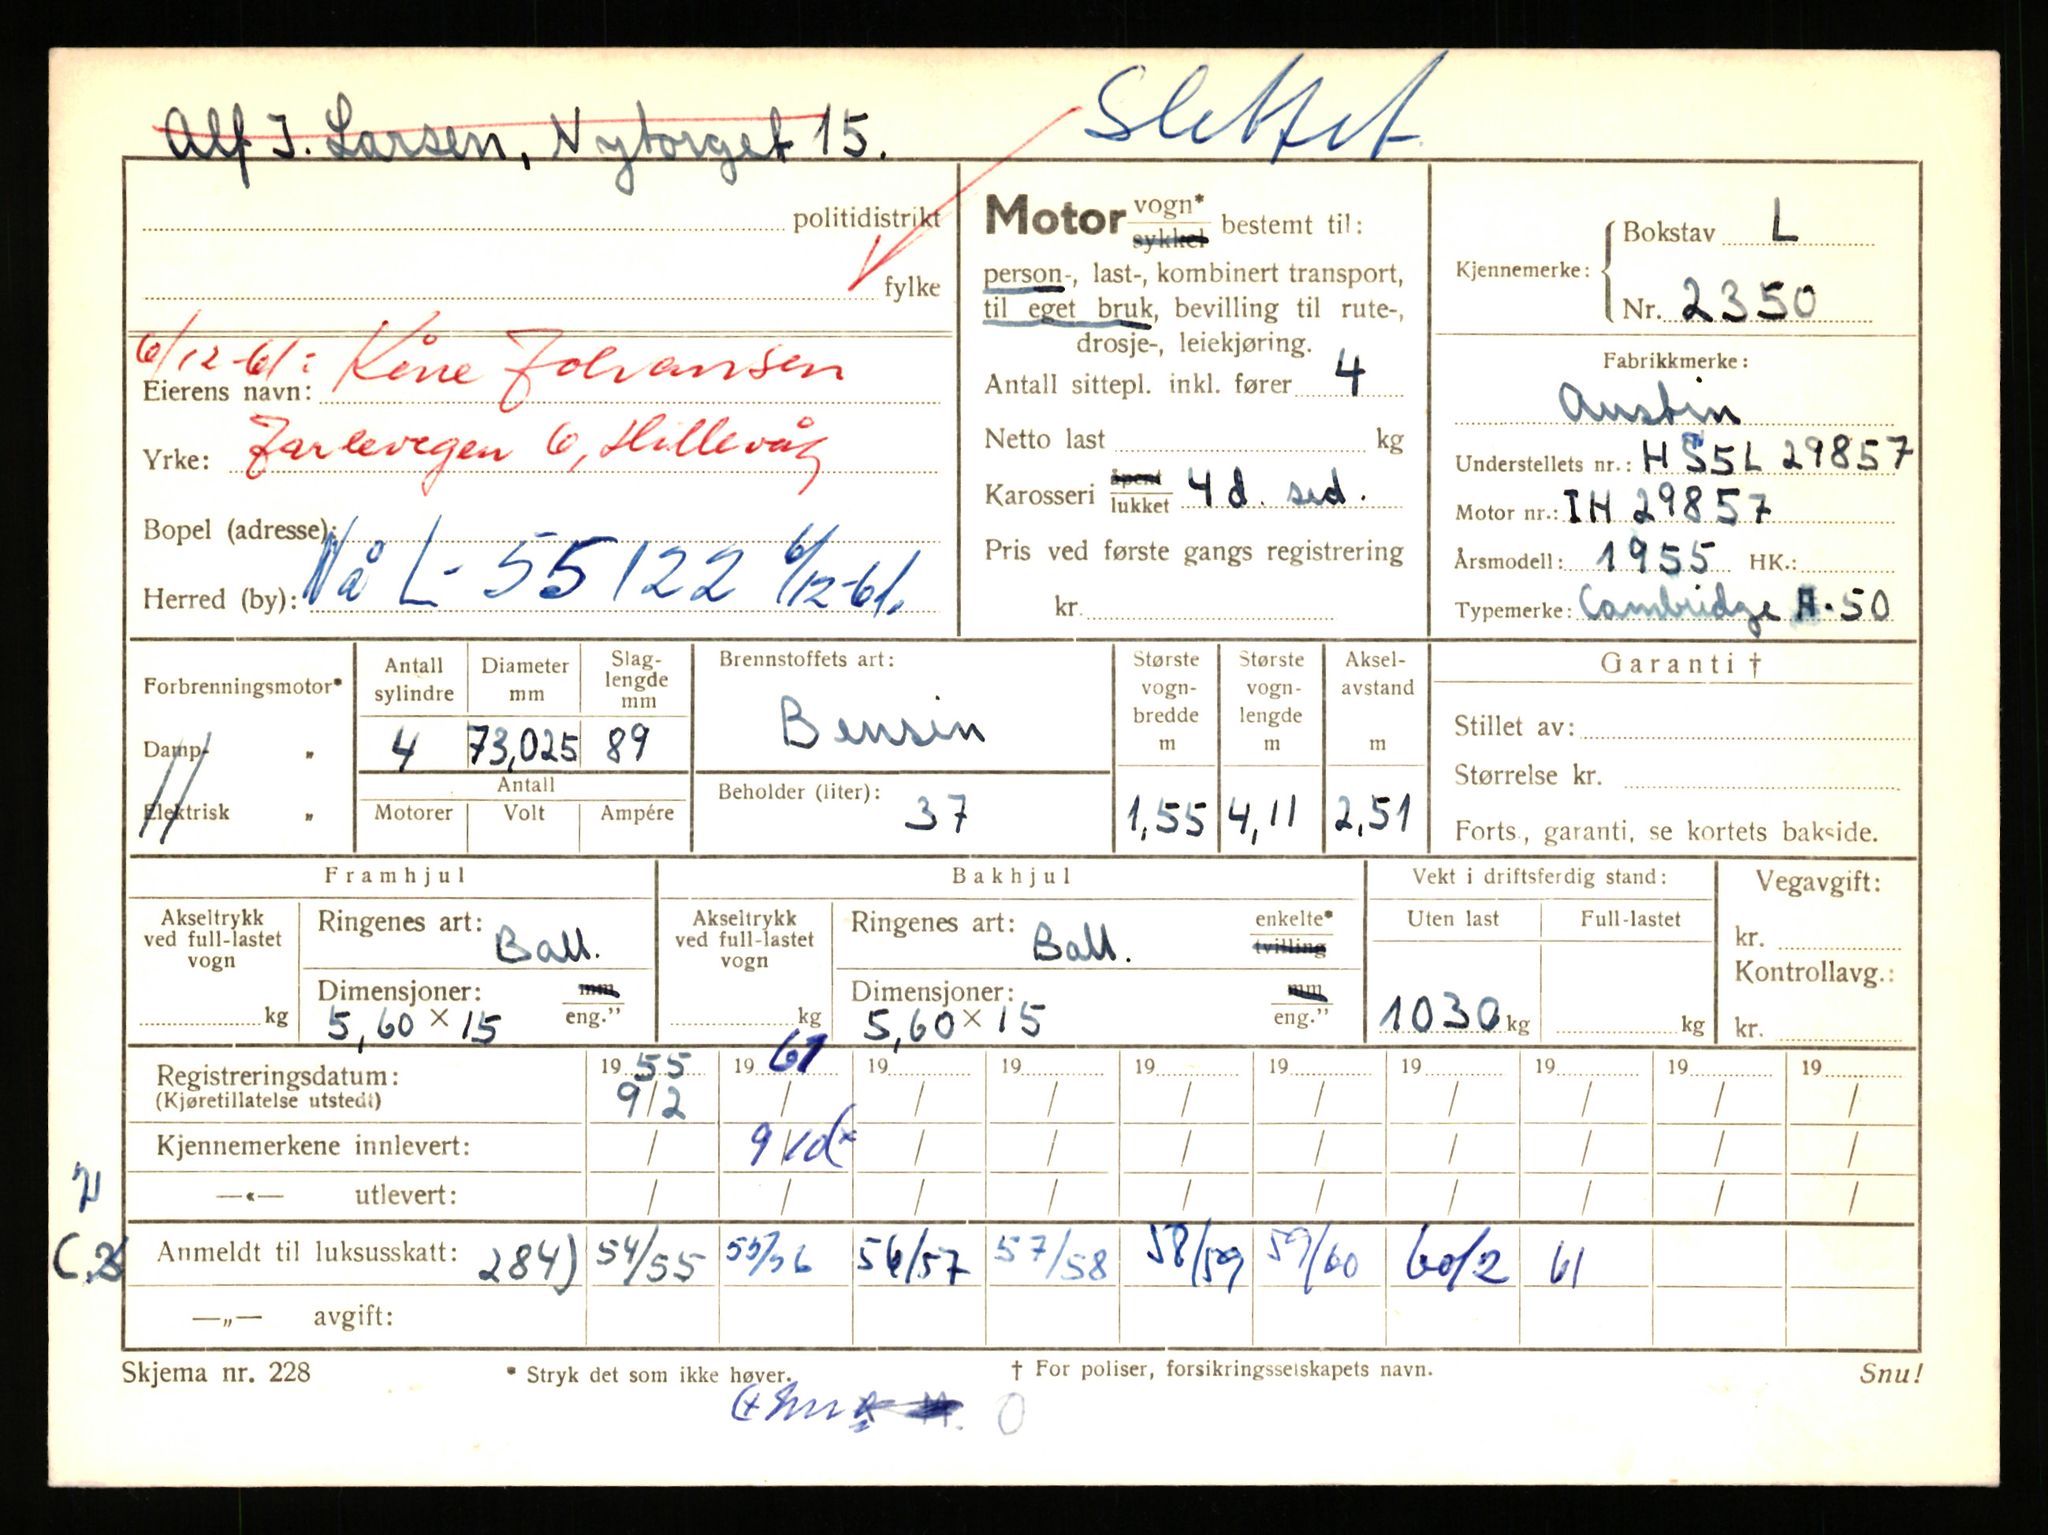 Slettet
Alf J. Larsen, Nytorget 15.
politidistrikt
fylke
6/12-61: Kåre Johansen
Eierens navn:
Yrke: Jarlevegen 6, Hillevåg
Bopel (adresse):
Herred (by): Nå L-55122 6/12-61.
Motor vogn* sykkel bestemt til:
person-, last-, kombinert transport,
til eget bruk, bevilling til rute-,
drosje-, leiekjøring.
Antall sittepl. inkl. fører 4
Netto last kg
Karosseri åpent lukket 4 d. sed.
Pris ved første gangs registrering
kr.
Kjennemerke: Bokstav L
Nr. 2350
Fabrikkmerke:
Austin
Understellets nr.: HS5L 29857
Motor nr.: IH 29857
Årsmodell: 1955 HK.:
Typemerke: Cambridge A.50
Forbrenningsmotor*
Damp- "
Elektrisk "
Antall sylindre
4
Diameter mm
73,025
Slag-
lengde
mm
89
Antall
Motorer Volt Ampére
Brennstoffets art:
Bensin
Beholder (liter):
37
Største
vogn-
bredde
m
1,55
Største
vogn-
lengde
m
4,11
Aksel-
avstand
m
2,51
Garanti †
Stillet av:
Størrelse kr.
Forts., garanti, se kortets bakside.
Framhjul
Akseltrykk
ved full-lastet
vogn
kg
Ringenes art:
Ball.
Dimensjoner: mm
5,60 × 15 eng."
Bakhjul
Akseltrykk
ved full-lastet
vogn
kg
Ringenes art: enkelte*
Ball. tvilling
Dimensjoner: mm
5,60 × 15 eng."
Vekt i driftsferdig stand:
Uten last Full-lastet
1030 kg kg
Vegavgift:
kr.
Kontrollavg.:
kr.
Registreringsdatum: 19 55 19 61 19 19 19 19 19 19 19 19
(Kjøretillatelse utstedt) 9/2 / / / / / / / / /
Kjennemerkene innlevert: / / / / / / / / /
—«— utlevert: / / / / / / / / / /
Anmeldt til luksusskatt: 284) 54/55 55/56 56/57 57/58 58/59 59/60 60/2 61
—„— avgift:
Skjema nr. 228 * Stryk det som ikke høver. † For poliser, forsikringsselskapets navn. Snu!